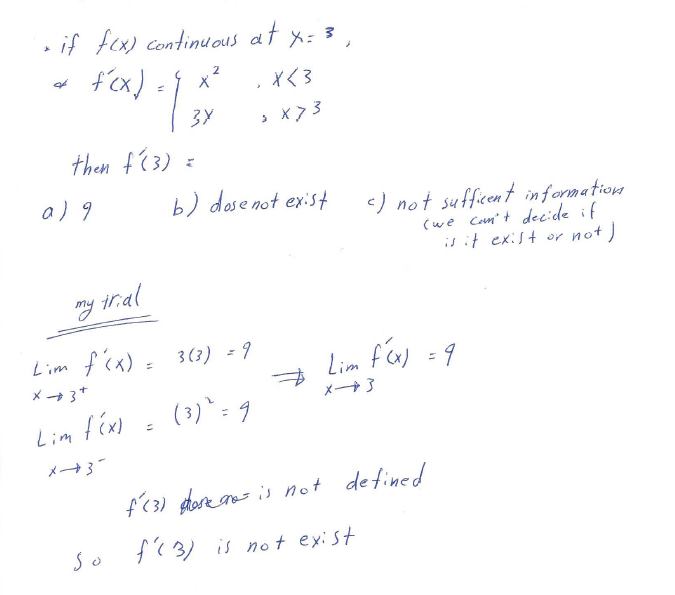 • if f(x) continuous at x = 3 ,
& f'(x) = { x² , x<3
3x , x>3
then f'(3) =
a) 9 b) dose not exist c) not sufficent information
(we can't decide if
is it exist or not)
my trial
Lim f'(x) = 3(3) = 9 ⟹ Lim f'(x) = 9
x→3⁺ x→3
Lim f'(x) = (3)² = 9
x→3⁻
f'(3) is not defined
So f'(3) is not exist